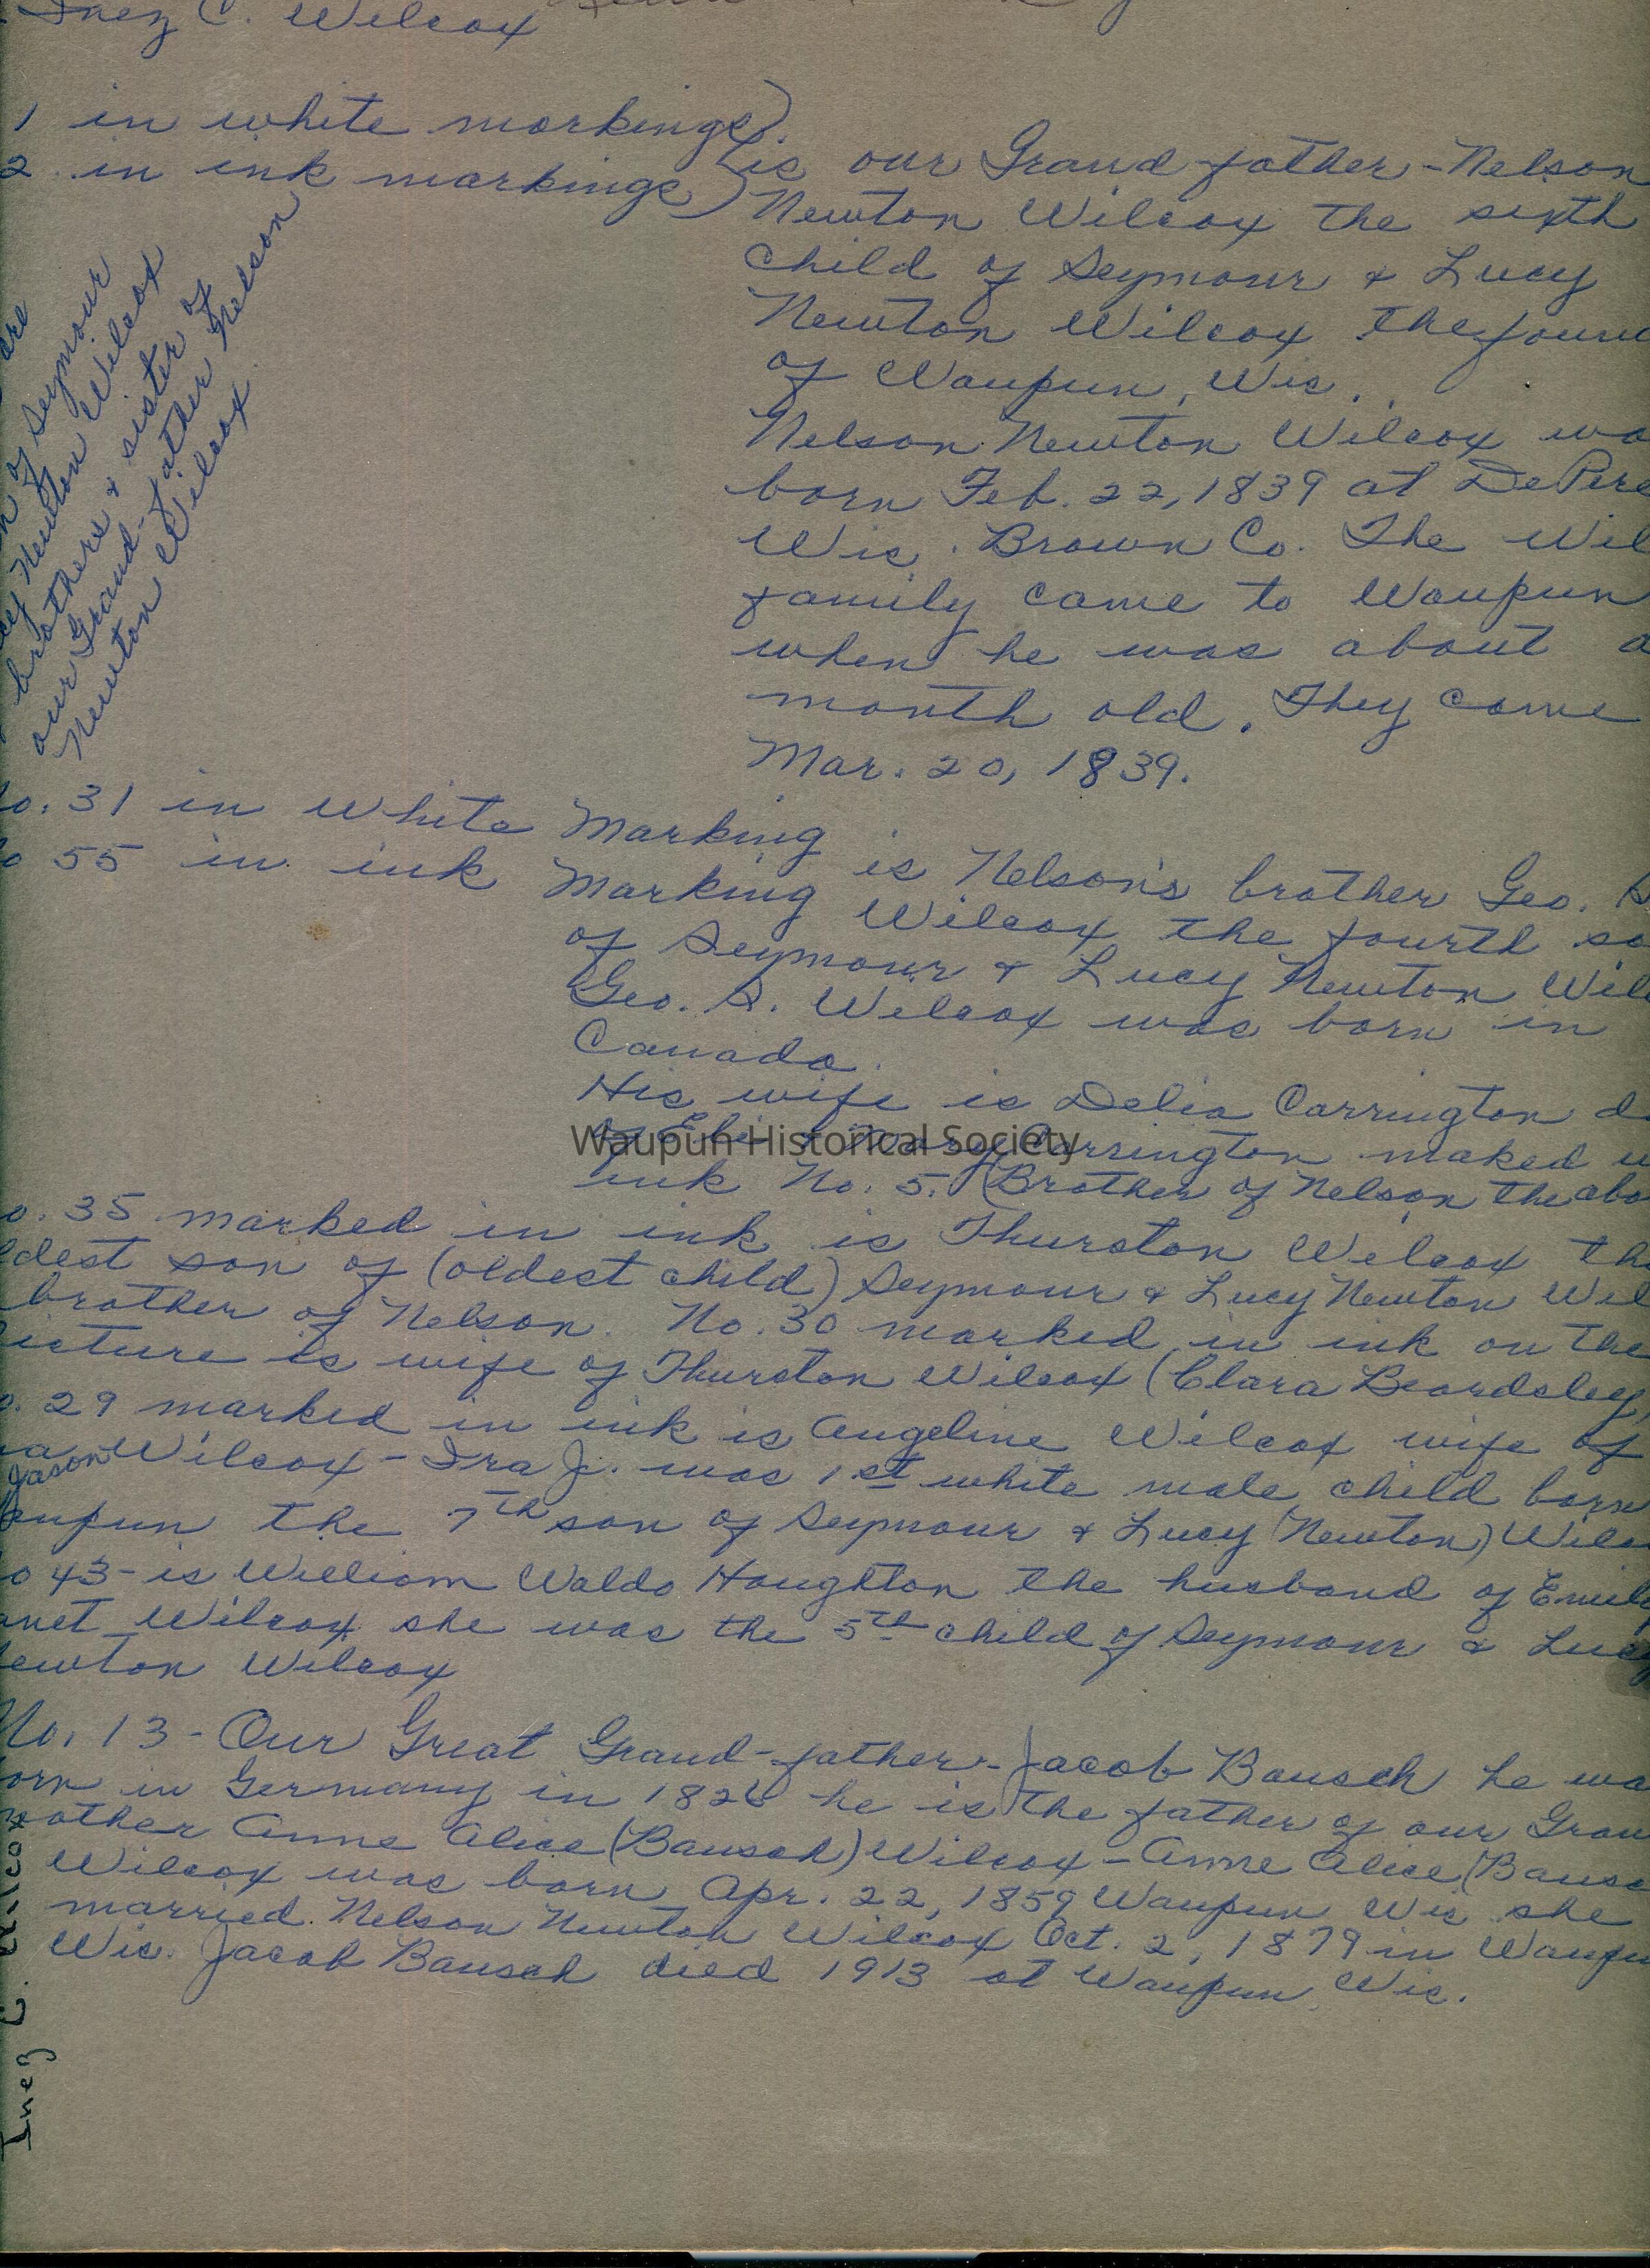 Inez C. Wilcox
1 in white markings)
2 in ink markings)
is our Grand-father-Nelson
Newton Wilcox the sixth
child of Seymour & Lucy
Newton Wilcox the foun
of Waupun, Wis.
Nelson Newton Wilcox wa
born Feb. 22, 1839 at DePere
Wis. Brown Co. The Wil
family came to Waupun
when he was about a
month old. They come
Mar. 20, 1839.
are
n of Seymour
cy Newton Wilcox
brothers & sister of
our Grand-father Nelson
Newton Wilcox
o. 31 in white Marking
o 55 in ink Marking
is Nelson's brother Geo. S.
Wilcox the fourth so
of Seymour & Lucy Newton Wil
Geo. S. Wilcox was born in
Canada.
His wife is Delia Carrington d
of Carrington maked
ink No. 5. (Brother of Nelson the abo
o. 35 marked in ink is Thurston Wilcox the
ldest son of (oldest child) Seymour & Lucy Newton Wil
brother of Nelson. No. 30 marked in ink on the
icture is wife of Thurston Wilcox (Clara Beardsley)
o. 29 marked in ink is Angeline Wilcox wife of
ra Jason Wilcox - Ira J. was 1st white male child born
aupun the 7th son of Seymour & Lucy (Newton) Wilc
o 43 - is William Waldo Houghton the husband of Emil
anet Wilcox she was the 5th child of Seymour & Lucy
ewton Wilcox
No. 13 - Our Great Grand-father - Jacob Bausch he wa
orn in Germany in 1826 he is the father of our Gran
mother Anne Alice (Bausch) Wilcox - Anne Alice (Bausc
Wilcox was born Apr. 22, 1859 Waupun Wis she
married Nelson Newton Wilcox Oct. 2, 1879 in Waupun
Wis. Jacob Bausch died 1913 at Waupun, Wis.
Inez C. Wilcox
Waupun Historical Society